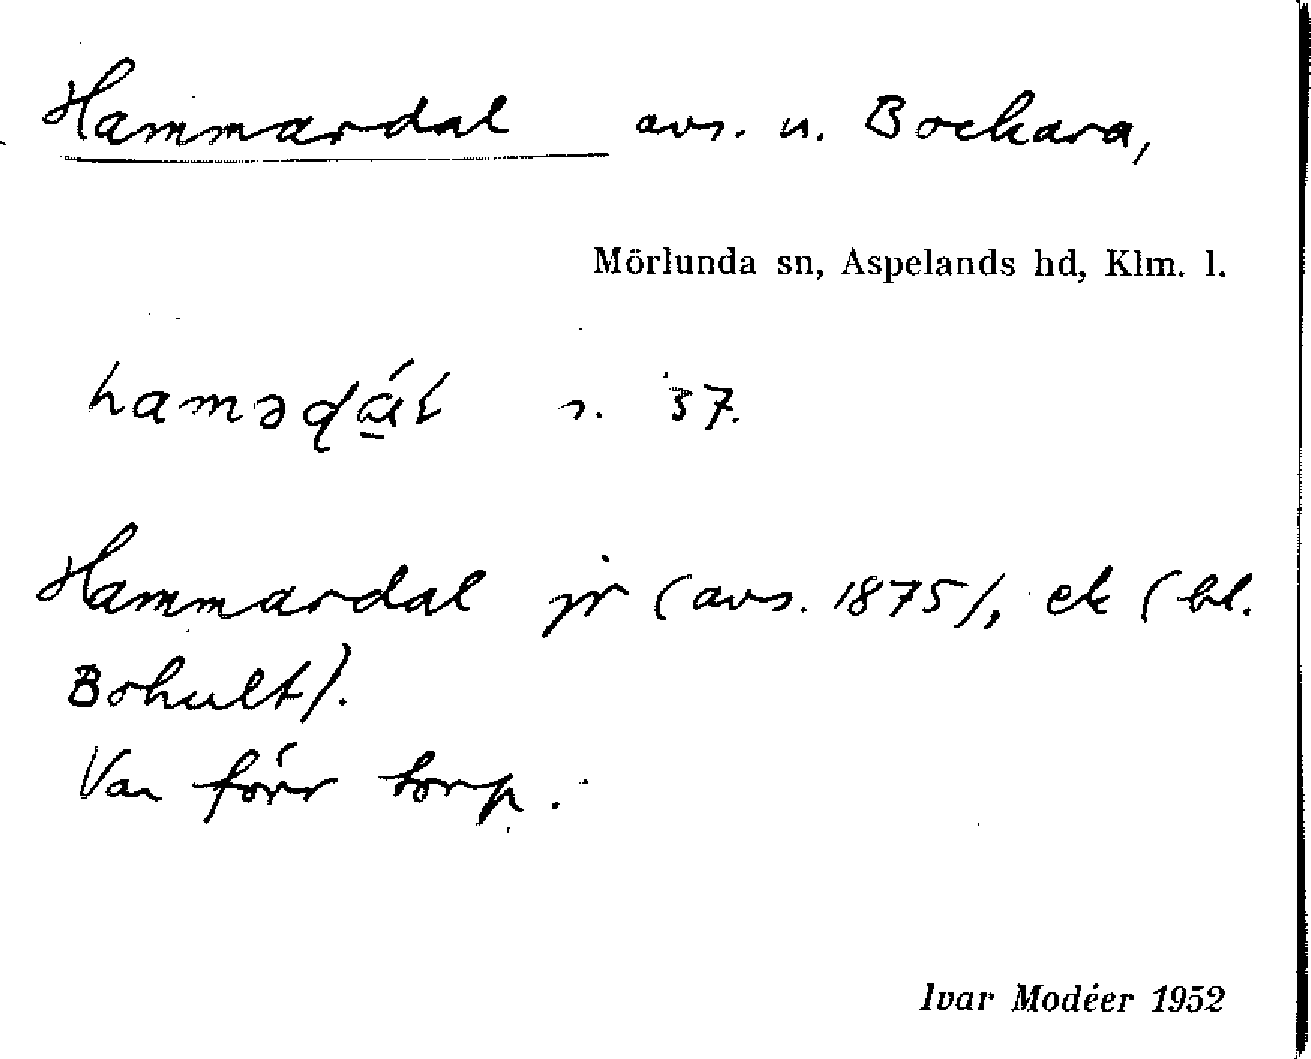 Hammardal avs. u. Bockara,
Mörlunda sn, Aspelands hd, Klm. l.
s. 37.
Hammardal jr (avs. 1875), ek (bl.
Bohult).
Var förr torp.
Ivar Modéer 1952